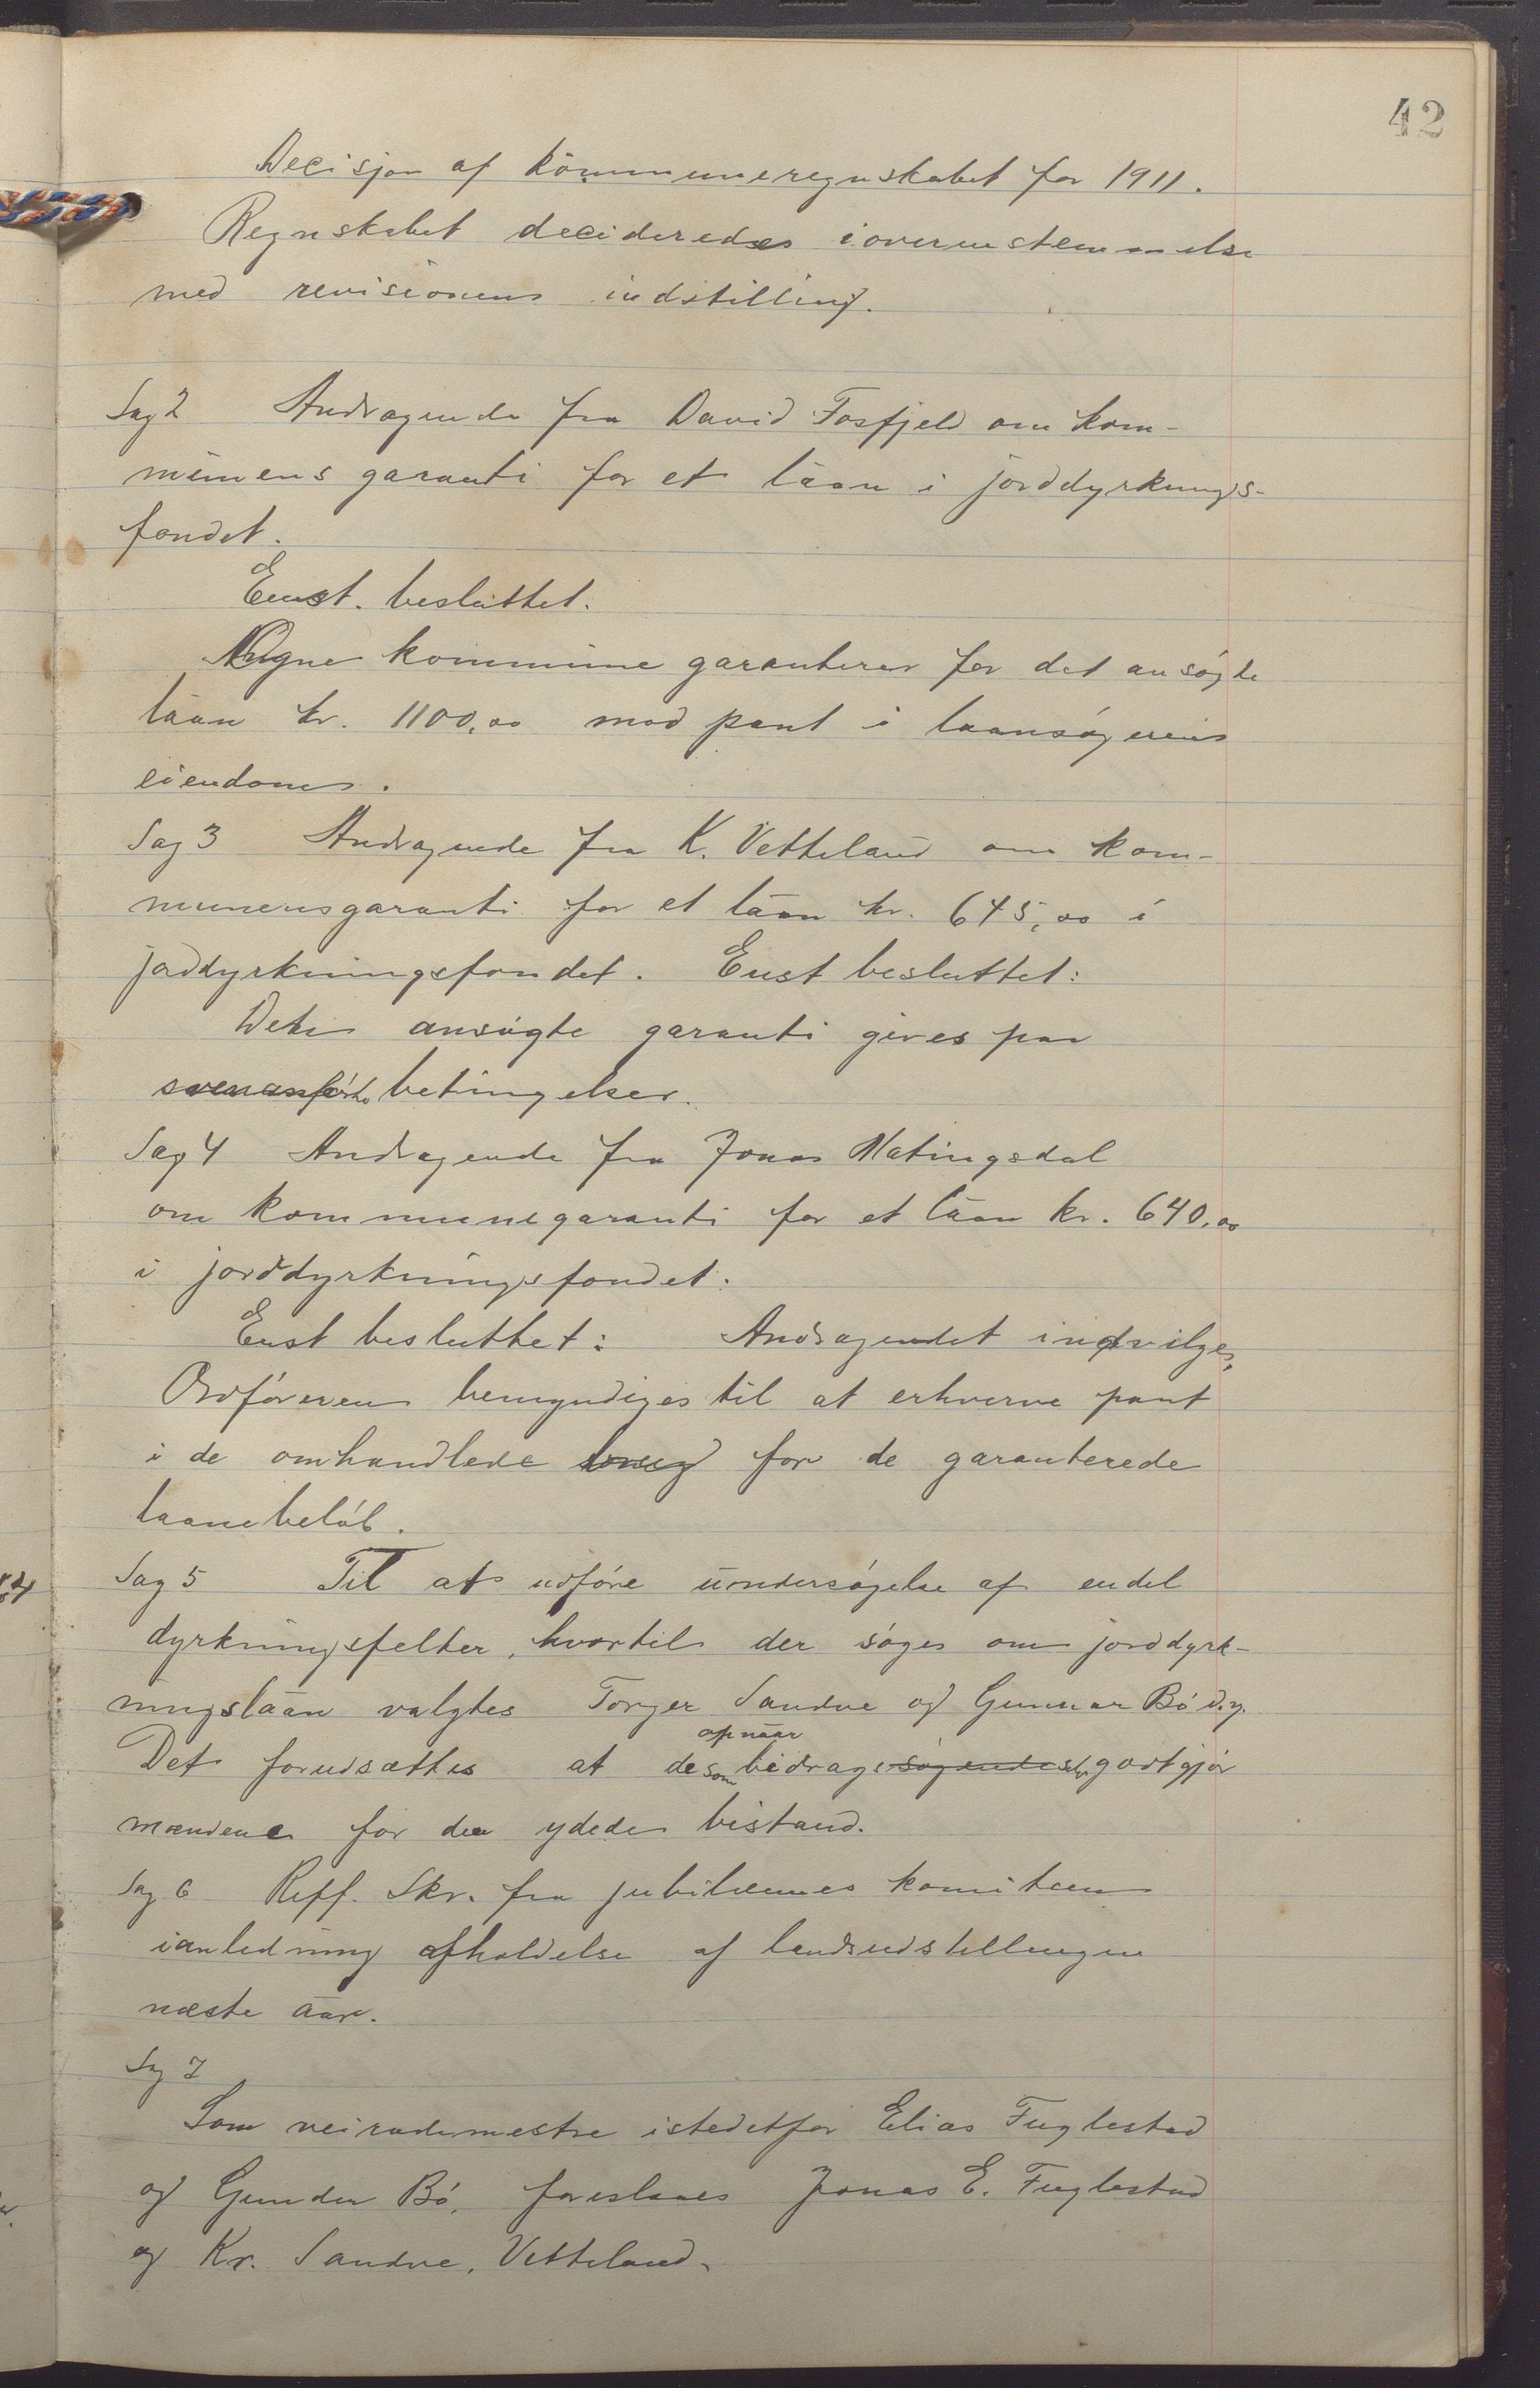 42
Decisjon af kommuneregnskabet for 1911.
Regnskabet decideredes ioverenstemmelse
med revisionens indstilling.
Sag 2 Andragende fra David Fosfjeld om kom-
munens garanti for et laan i jorddyrknings-
fondet.
Enst. besluttet.
Ogne kommune garanterer for det ansøgte
laan kr. 1100,00 mod pant i laansøgerens
eiendom.
Sag 3 Andragende fra K. Vetteland om kom-
munensgaranti for et laan kr. 645,00 i
jorddyrkningsfondet. Enst besluttet:
Den ansøgte garanti gives paa
ovenanførte betingelser.
Sag 4 Andragende fra Jonas Matingsdal
om kommunegaranti for et laan kr. 640,00
i jorddyrkningsfondet.
Enst besluttet: Andragendet indvilges,
Ordføreren bemyndiges til at erhverve pant
i de omhandlede for de garanterede
laanebeløb.
Sag 5 Til at udføre undersøgelse af endel
dyrkningsfelter, hvortil der søges om jorddyrk-
ningslaan valgtes Torger Sandve og Gunnar Bø d.y.
opnaar
Det forudsættes at de som bidrag søgende godtgjør
mændene for den ydede bistand.
Sag 6 Reff. Skr. fra jubilæumes komiteen
ianledning afholdelse af landsudstillingen
næste aar.
Sag 7
Som veirodemestre istedetfor Elias Fuglestad
og Gunder Bø, foreslaaes Jonas E. Fuglestad
og Kr. Sandve, Vetteland.